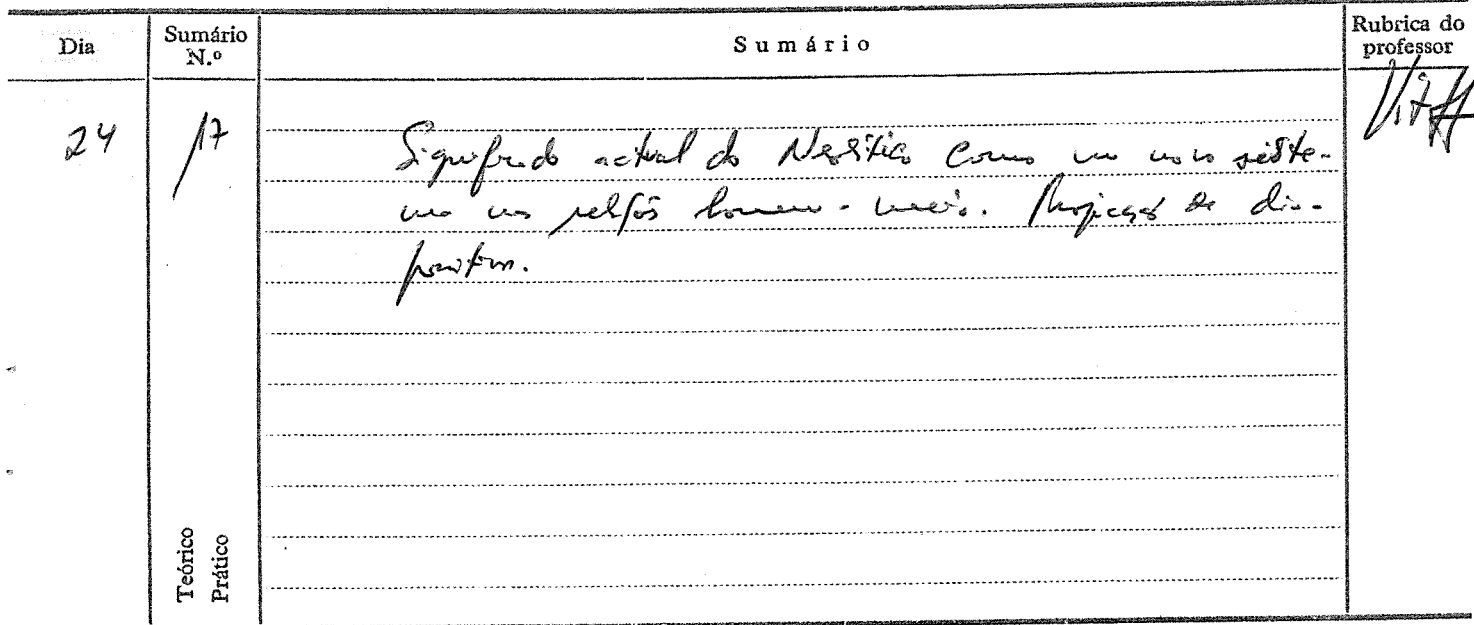 Dia
Sumário N.º
Sumário
Rubrica do professor
24
17
Significado actual do Neolítico como um novo siste-
ma nas relações homem-meio. Projecção de dia-
positivos.
Teórico
Prático